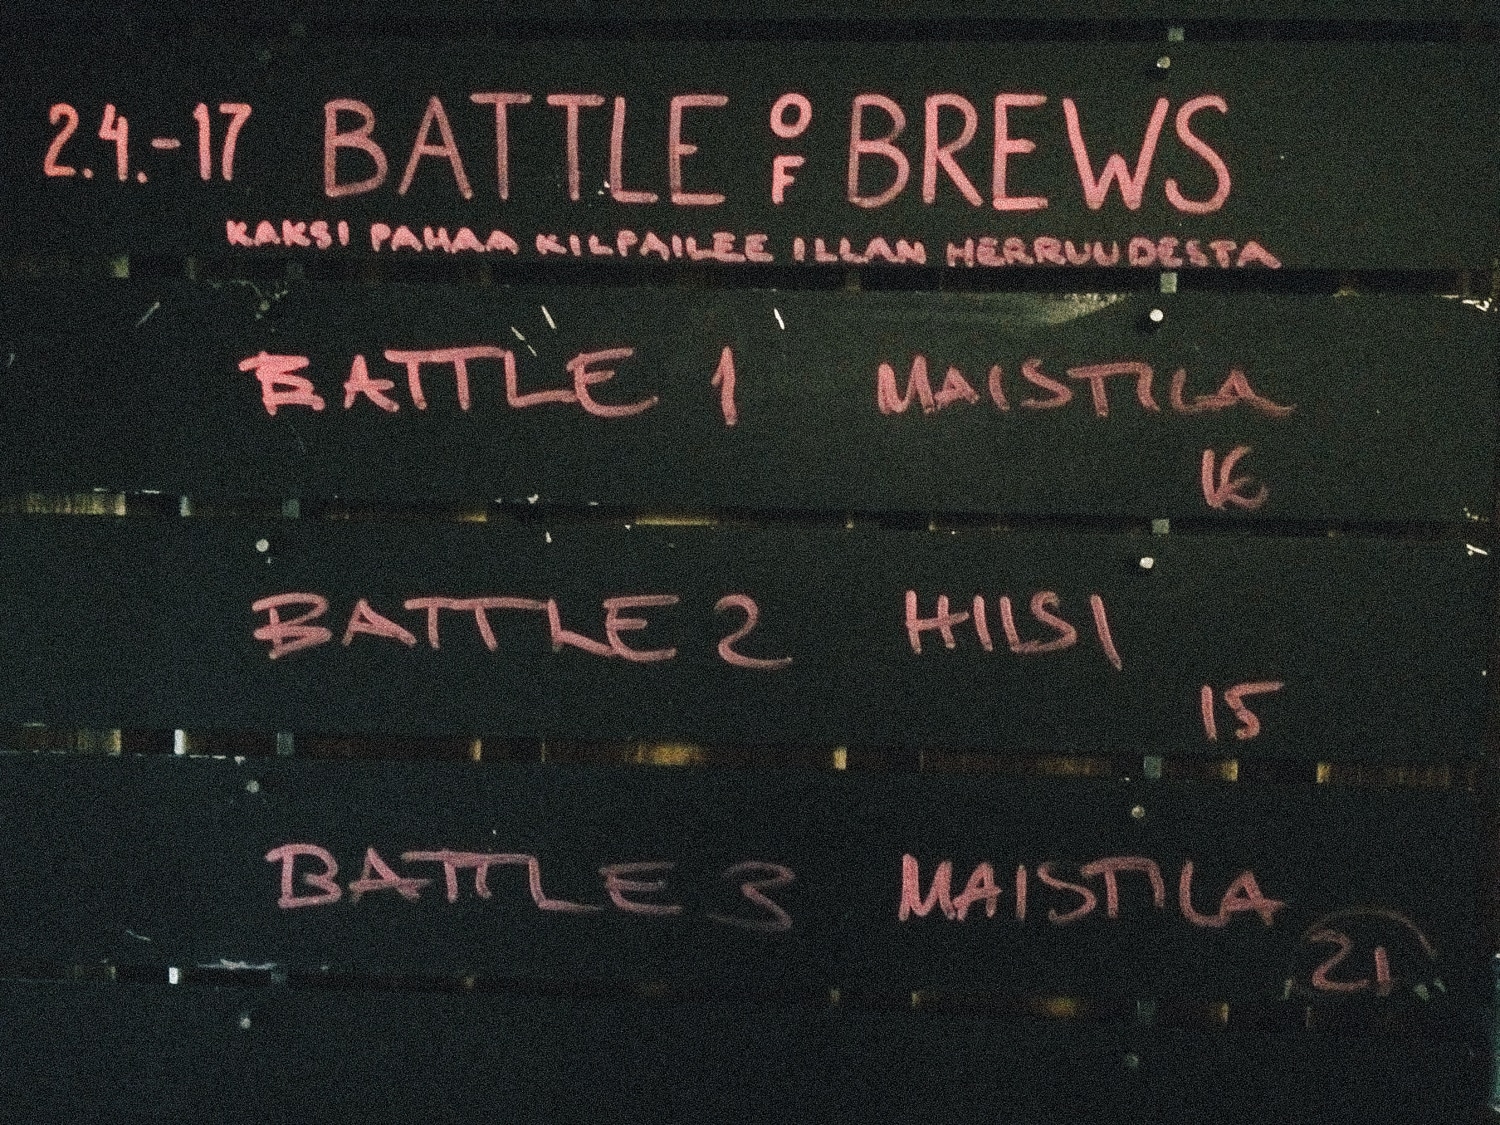 2.4.-17 BATTLE OF BREWS
KAKSI PAHAA KILPAILEE ILLAN HERRUUDESTA
BATTLE 1 MAISTILA
16
BATTLE 2 HIISI
15
BATTLE 3 MAISTILA
21